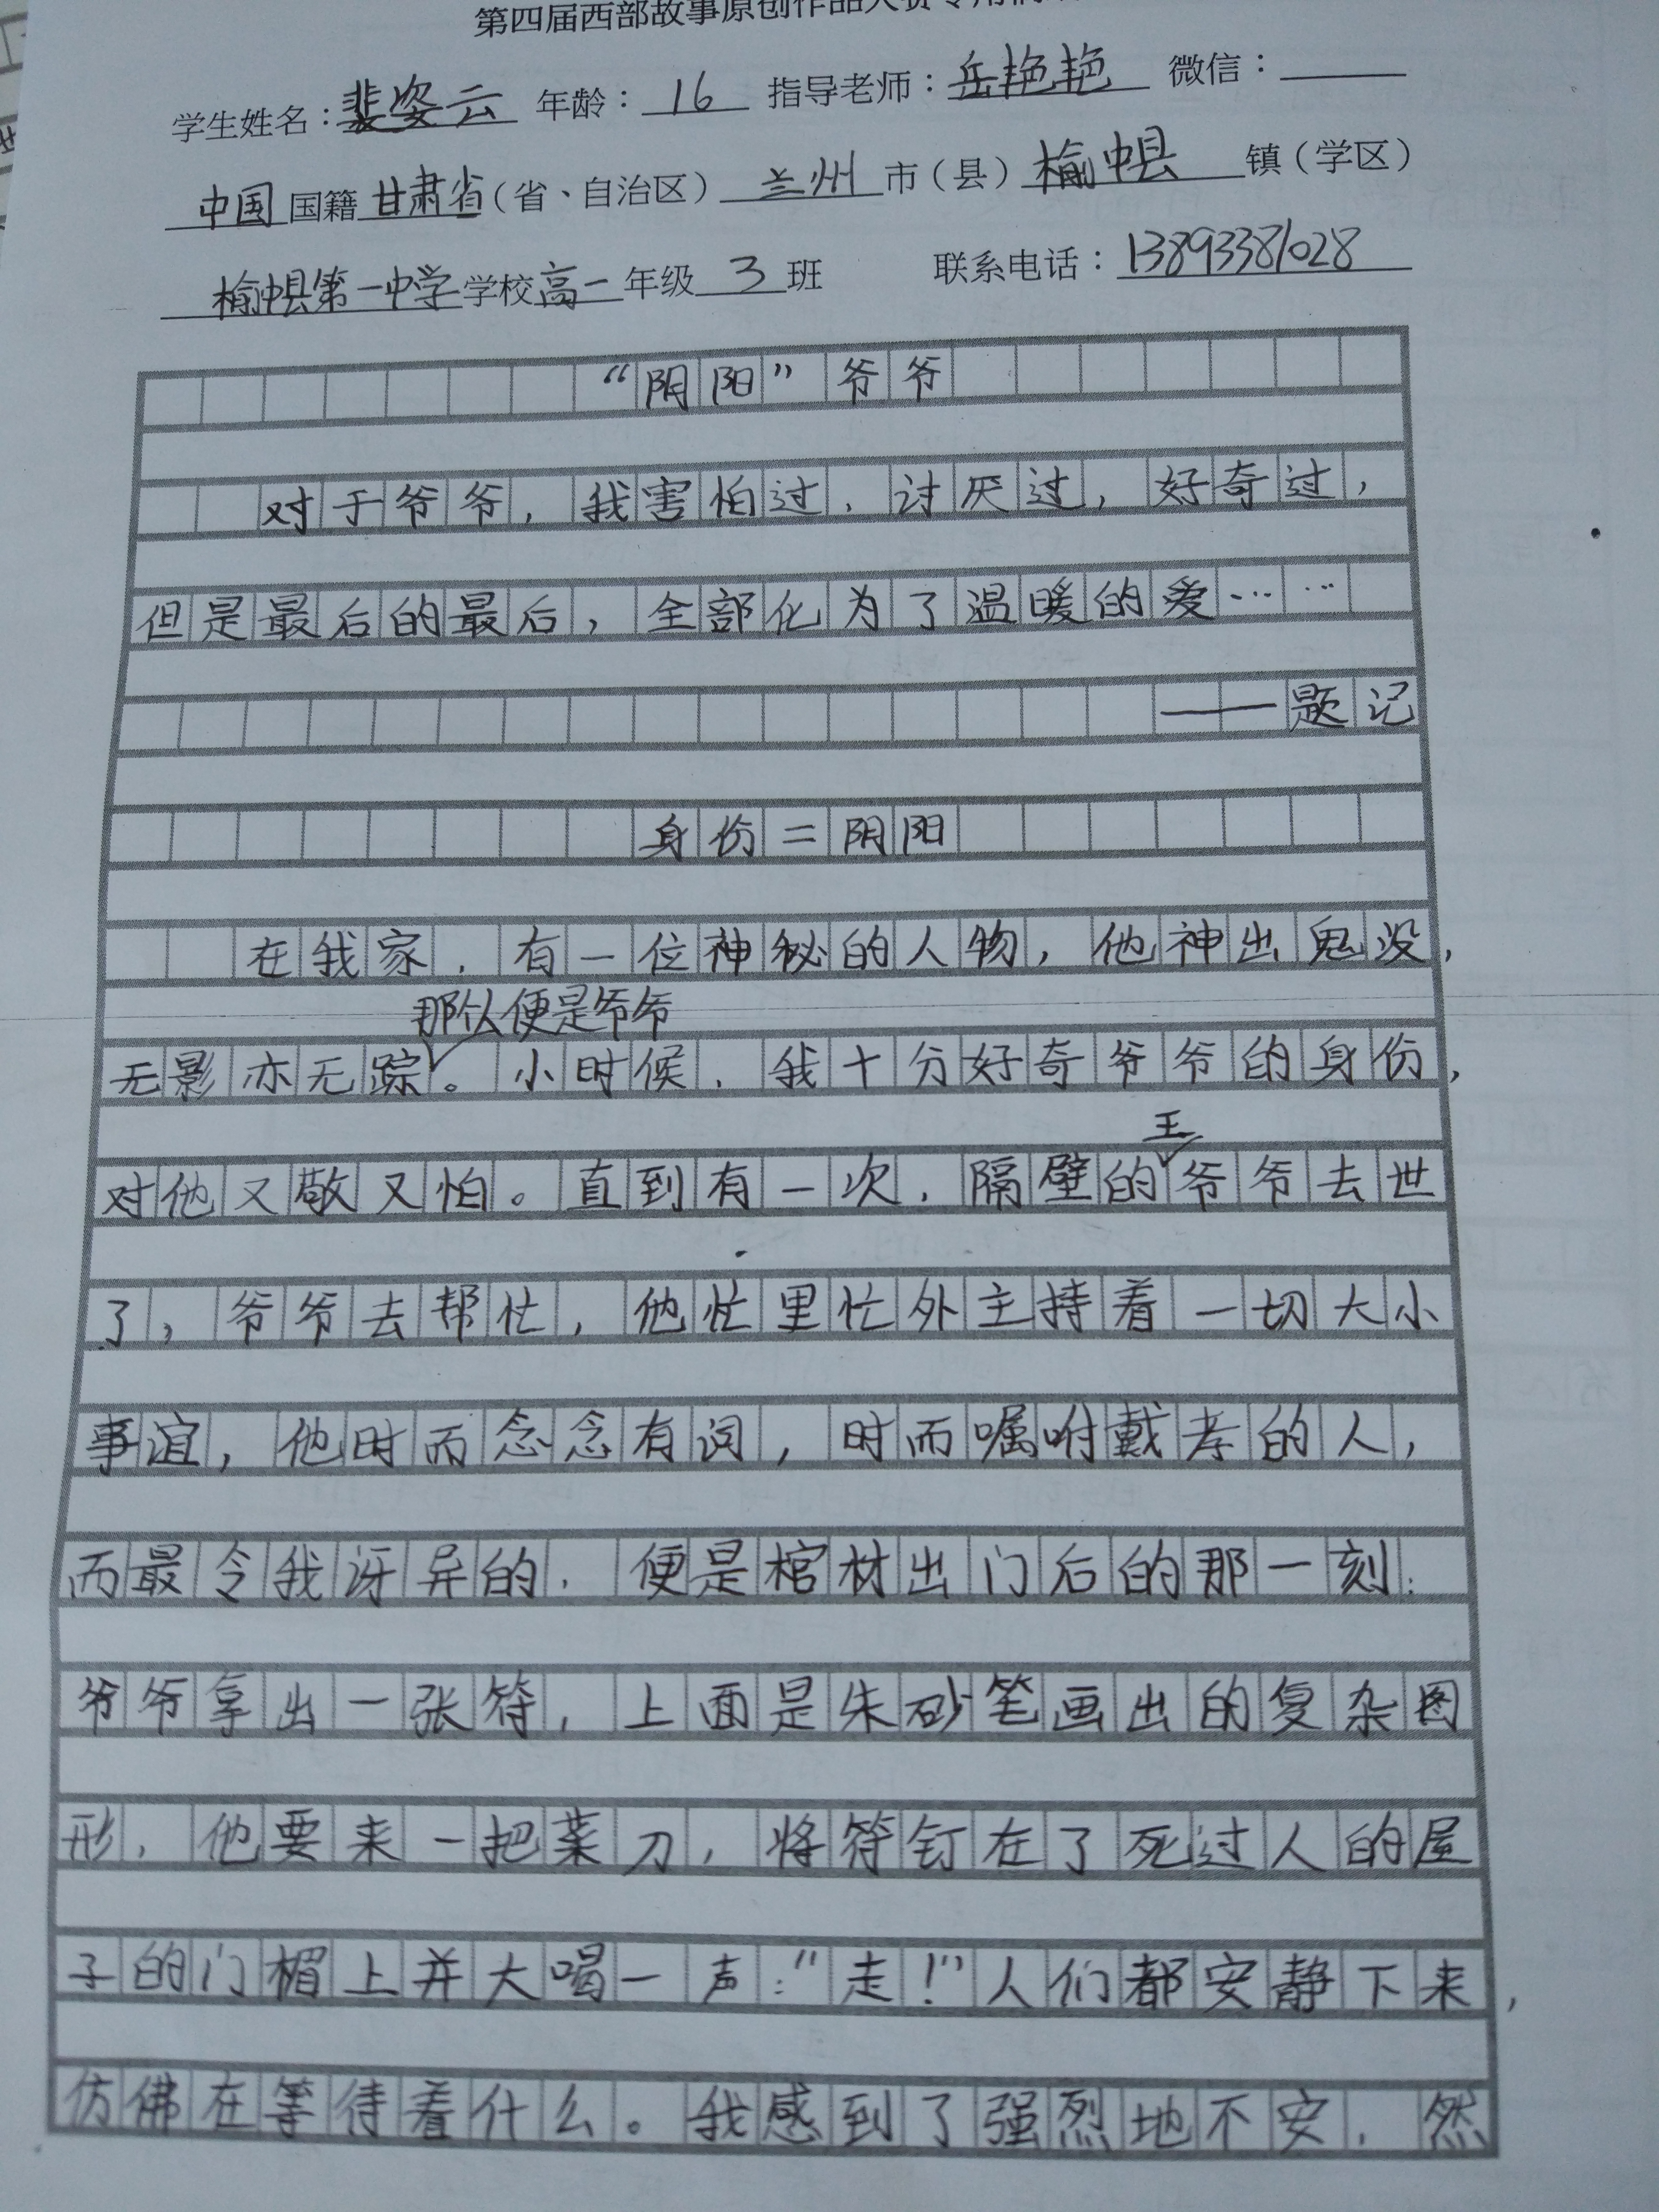 第四届西部故事原创作品大赛专用稿
学生姓名：裴姿云 年龄：16 指导老师：岳艳艳 微信：
中国国籍甘肃省（省、自治区）兰州市（县）榆中县镇（学区）
榆中县第一中学学校高一年级3班 联系电话：13893381028
“阴阳”爷爷
对于爷爷，我害怕过，讨厌过，好奇过，
但是最后的最后，全部化为了温暖的爱……
——题记
身份=阴阳
在我家，有一位神秘的人物，他神出鬼没，
那么便是爷爷
无影亦无踪。小时候，我十分好奇爷爷的身份，
王
对他又敬又怕。直到有一次，隔壁的爷爷去世
了，爷爷去帮忙，他忙里忙外主持着一切大小
事谊，他时而念念有词，时而嘱咐戴孝的人，
而最令我讶异的，便是棺材出门后的那一刻：
爷爷拿出一张符，上面是朱砂笔画出的复杂图
形，他要来一把菜刀，将符钉在了死过人的屋
子的门楣上并大喝一声：“走！”人们都安静下来，
仿佛在等待着什么。我感到了强烈地不安，然